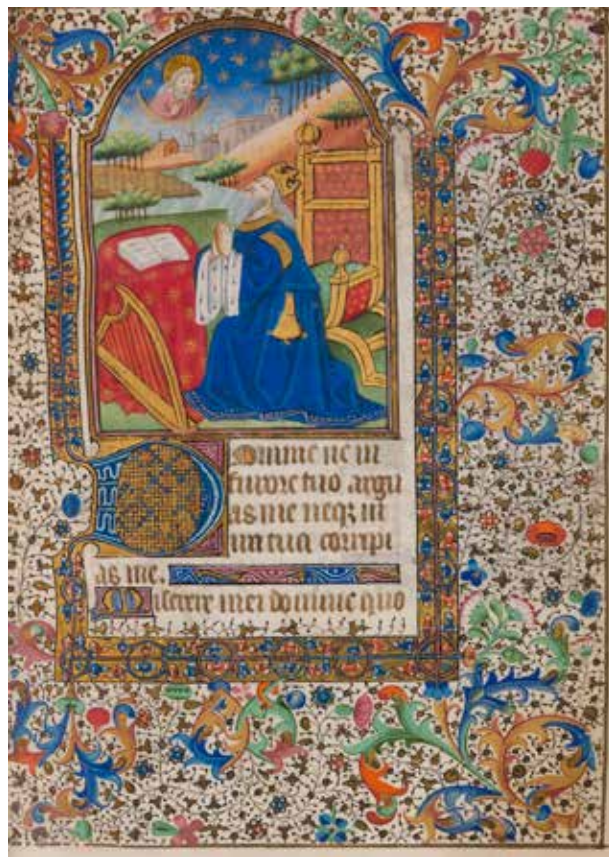 Domine ne in
furore tuo argu
as me neqꝫ in
ira tua corripi
as me.
Miserere mei domine quo